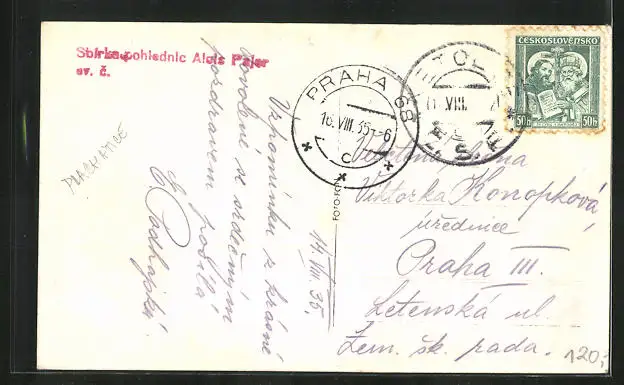 Sbírka pohlednic Alois Pajer
ev. č.
PLACHATICE
Vzpomínku z krásné
dovolené se srdečným
pozdravem posílá
Podhajská
14. VIII. 35.
FOTO-FO
PRAHA 68
16. VIII. 35 - 6
c
VIII.
ČESKOSLOVENSKO
50h 50h
Velectěná slečna
Viktorka Konopková,
úřednice
Praha III.
Letenská ul.
Zem. šk. rada.
120,-